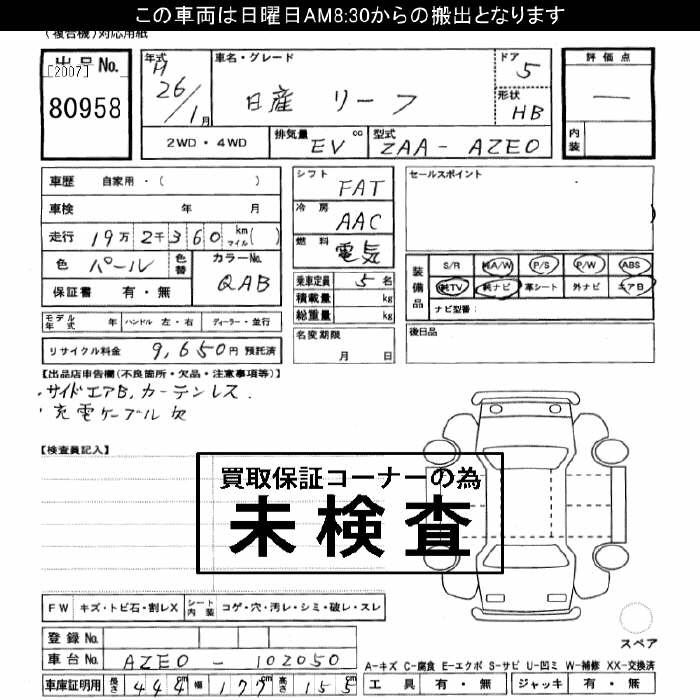 この車両は日曜日AM8:30からの搬出となります
(複合機)対応用紙
出品No.
[2007]
80958
年式 H 26/1月
車名・グレード
日産 リーフ
ドア 5
形状 HB
評価点
—
内装
2WD・4WD
排気量 EV cc
型式 ZAA-AZE0
車歴 自家用・( )
車検 年 月
走行 19万2千360 km マイル( )
色 パール 色替
カラーNo. QAB
保証書 有・無
モデル年式 年 ハンドル 左・右 ディーラー・並行
リサイクル料金 9,650円 預託済
シフト FAT
冷房 AAC
燃料 電気
乗車定員 5名
積載量 kg
総重量 kg
名変期限
月 日
セールスポイント
装備品
S/R 純A/W P/S P/W ABS
純TV 純ナビ 革シート 外ナビ エアB
ナビ型番:
後日品
【出品店申告欄(不良箇所・欠品・注意事項等)】
サイドエアB,カーテンレス.
充電ケーブル欠
【検査員記入】
買取保証コーナーの為
未検査
FW キズ・トビ石・割レX シート内装 コゲ・穴・汚レ・シミ・破レ・スレ
スペア
登録No.
車台No. AZE0-102050
車庫証明用 長さ 444cm 幅 177cm 高さ 155cm
A-キズ C-腐食 E-エクボ S-サビ U-凹ミ W-補修 XX-交換済
工具 有・無 ジャッキ 有・無